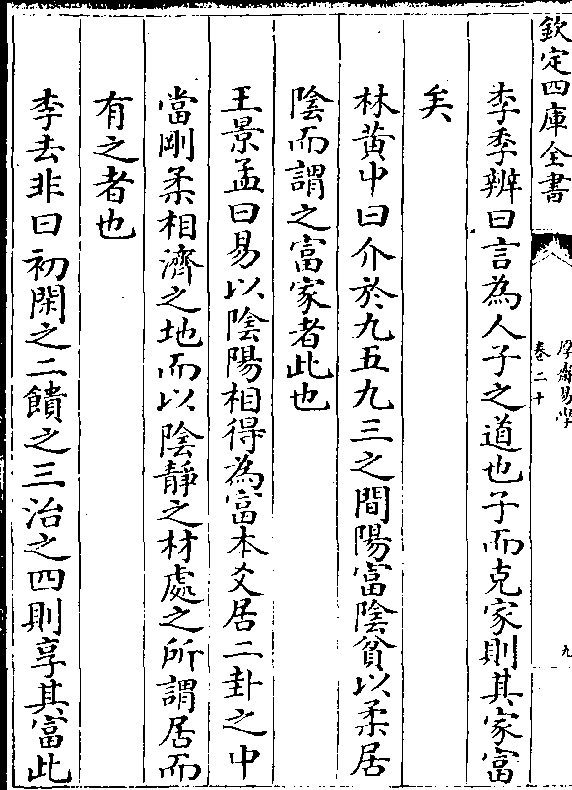 欽定四庫全書
厚齋易學
卷二十
九
李季辨曰言為人子之道也子而克家則其家富
矣
林黄中曰介於九五九三之間陽富陰貧以柔居
陰而謂之富家者此也
王景孟曰易以陰陽相得為富本爻居二卦之中
當剛柔相濟之地而以陰靜之材處之所謂居而
有之者也
李去非曰初閑之二饋之三治之四則享其富此